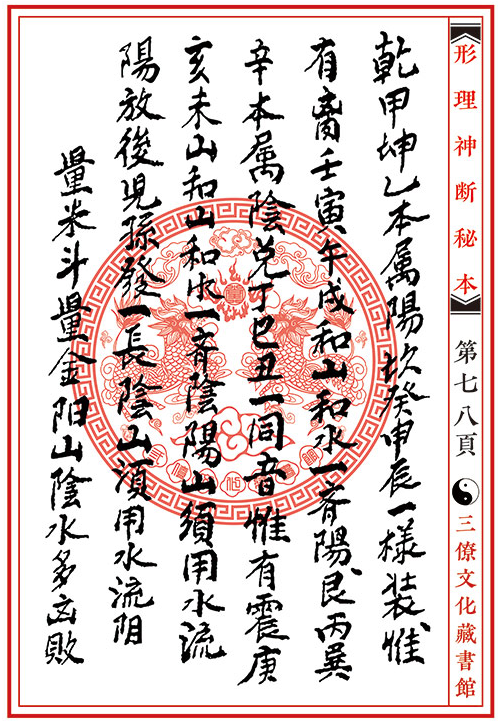 【形理神断秘本】
第七八頁
三僚文化藏書館
乾甲坤乙本属陽坎癸申辰一樣装惟
有离壬寅午戌和山和水一斉陽艮丙巽
辛本属陰兌丁巳丑一同音惟有震庚
亥未山和山和水一斉陰陽山須用水流
陽放後児孫發一長陰山須用水流阴
量米斗量金阳山陰水多凶敗